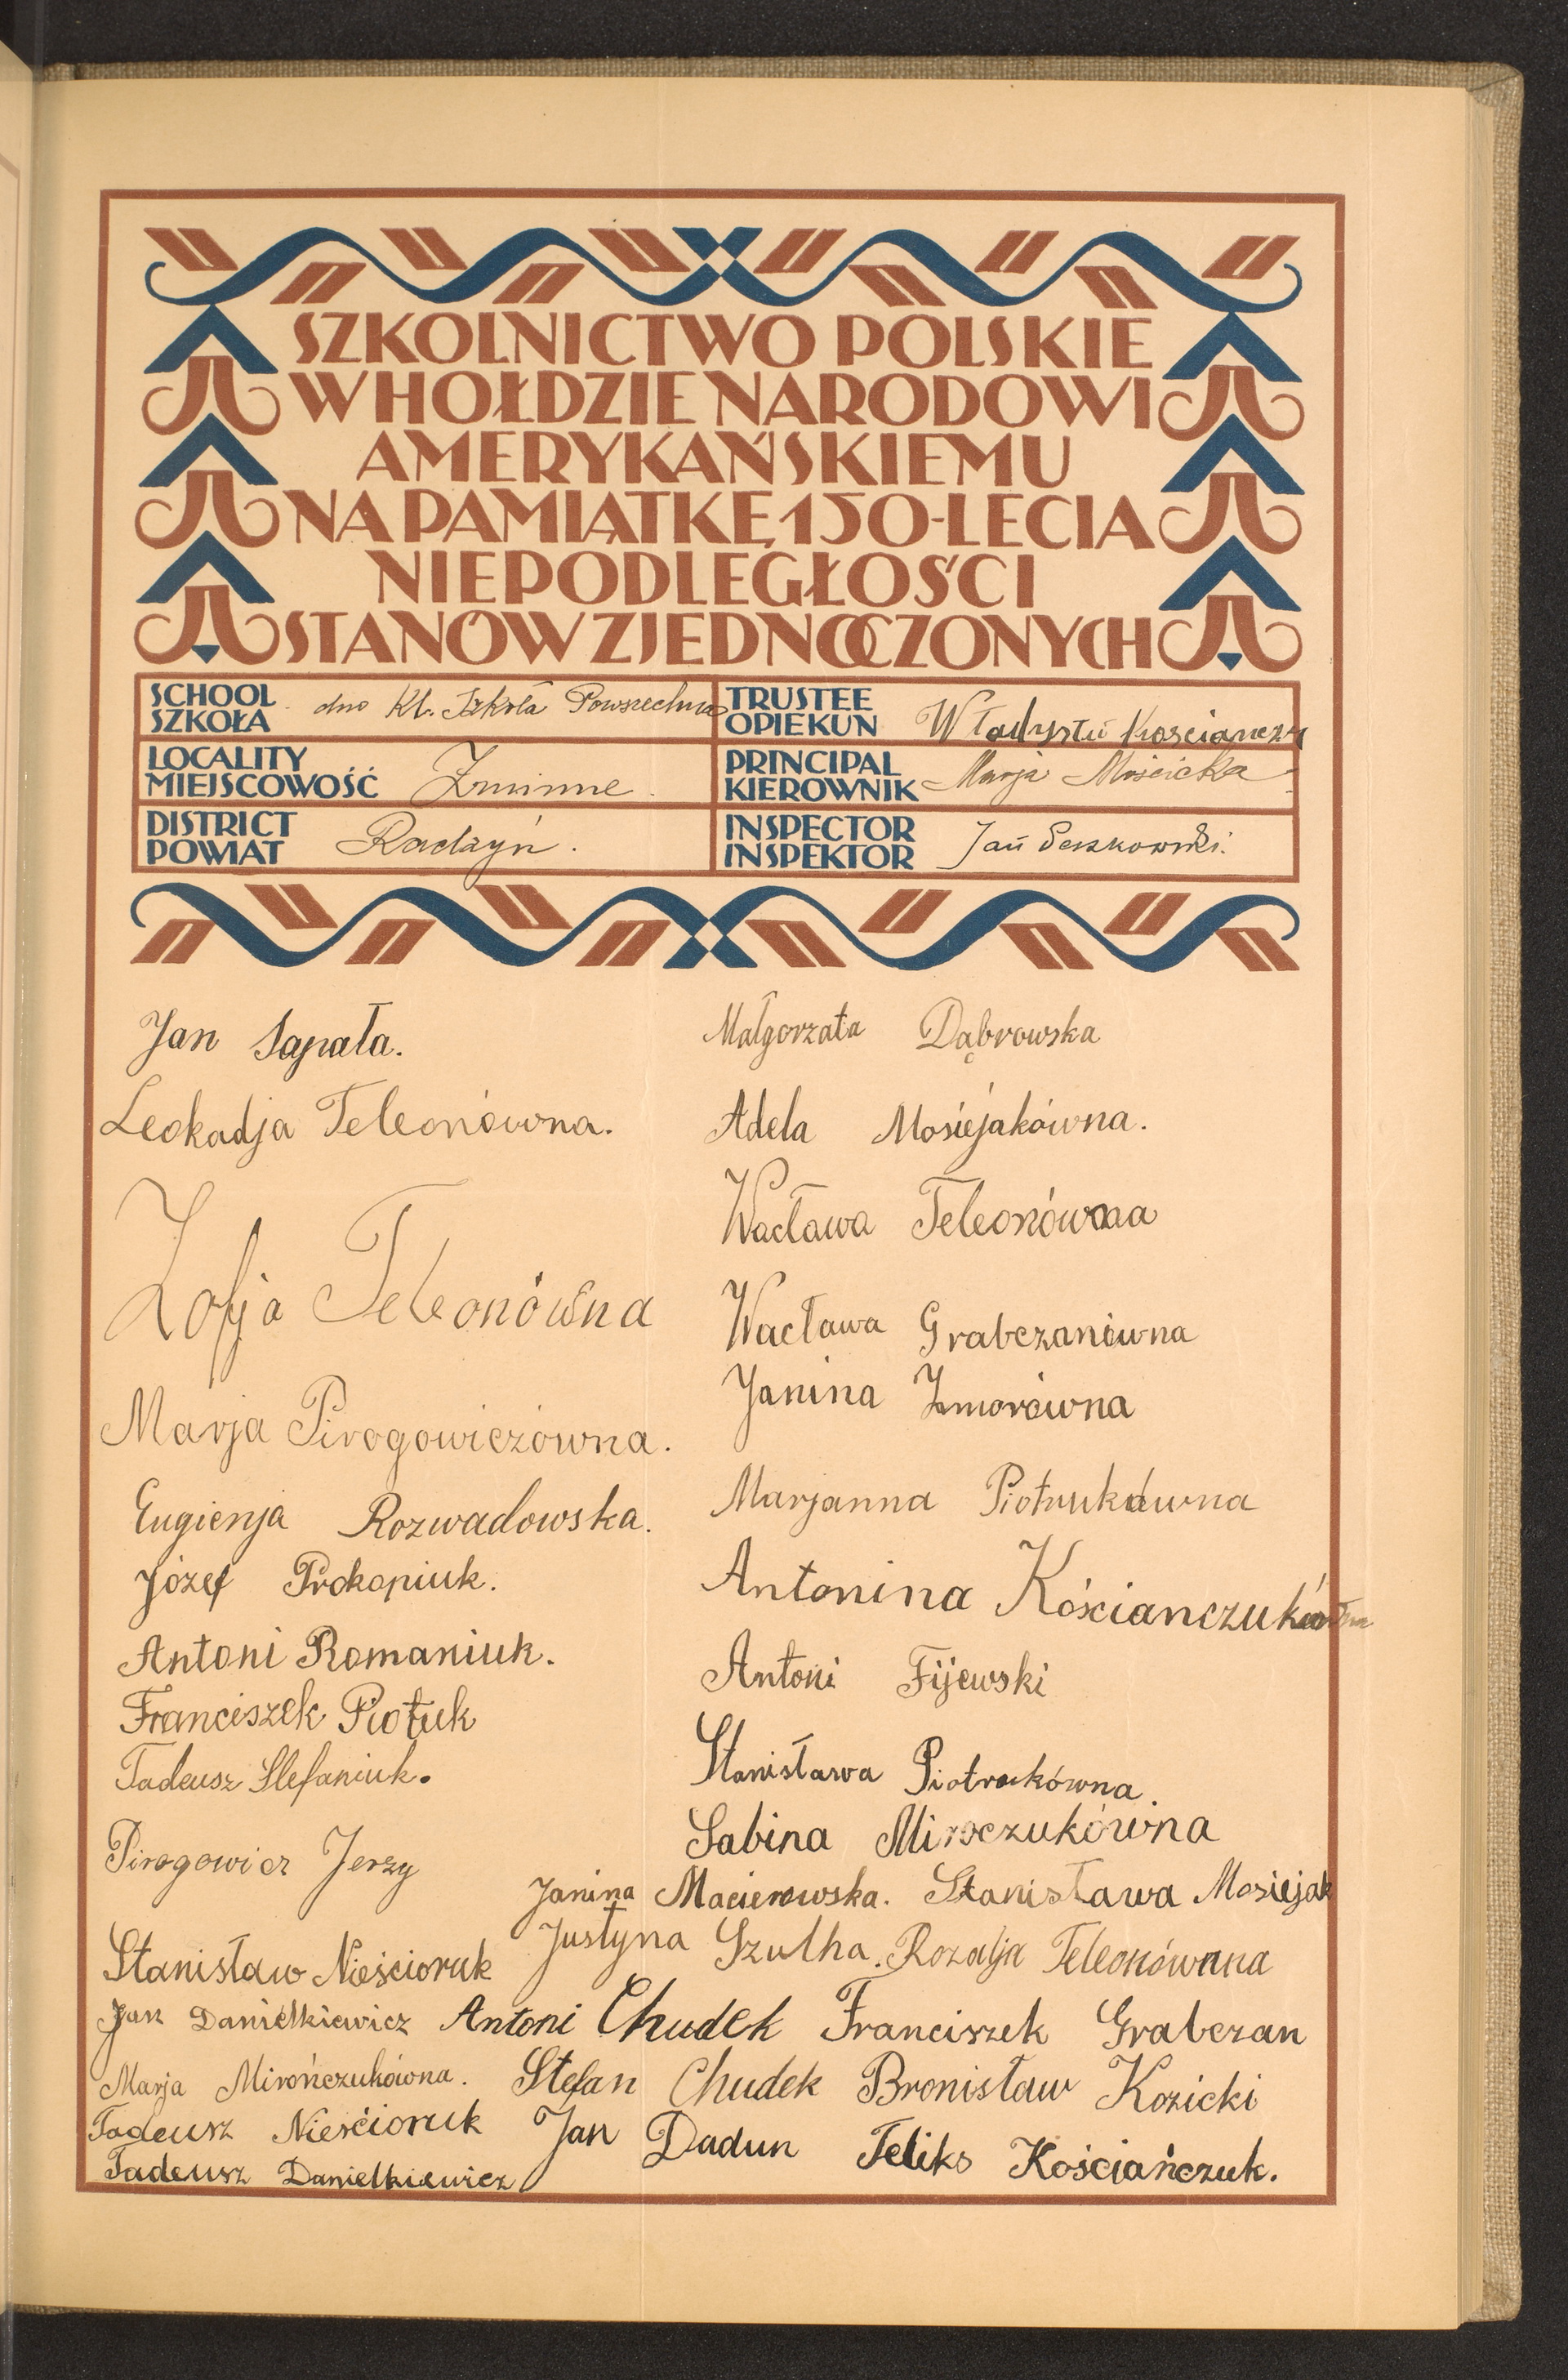 SZKOLNICTWO POLSKIE
W HOŁDZIE NARODOWI
AMERYKAŃSKIEMU
NA PAMIĄTKĘ 150-LECIA
NIEPODLEGŁOŚCI
STANÓW ZJEDNOCZONYCH
SCHOOL
SZKOŁA
dwo Kl. Szkoła Powszechna
TRUSTEE
OPIEKUN
LOCALITY
MIEJSCOWOŚĆ
Żminne.
PRINCIPAL
KIEROWNIK
Marja Mościcka
DISTRICT
POWIAT
Radzyń.
INSPECTOR
INSPEKTOR
Jan
Jan Sapała.
Leokadja Teleonówna.
Zofja Teleonówna
Marja Pirogowiczówna.
Eugienja Rozwadowska.
Józef Prokopiuk.
Antoni Romaniuk.
Franciszek Piotuk
Tadeusz Stefaniuk.
Pirogowicz Jerzy
Stanisław Nieścioruk
Małgorzata Dąbrowska
Adela Mosiejakówna.
Wacława Teleonówna
Wacława Grabczanówna
Janina Zmorówna
Marjanna Piotrukówna
Antonina
Antoni Fijewski
Stanisława Piotrukówna.
Sabina Miroczukówna
Janina Macierowska. Stanisława Mosiejak
Justyna Szulha. Rozalja Teleonównna
Jan Danielkiewicz Antoni Chudek Franciszek Grabczan
Marja Mirończukówna. Stefan Chudek Bronisław Kozicki
Tadeusz Nieścioruk Jan Dadun Feliks Kościańczuk.
Tadeusz Danielkiewicz